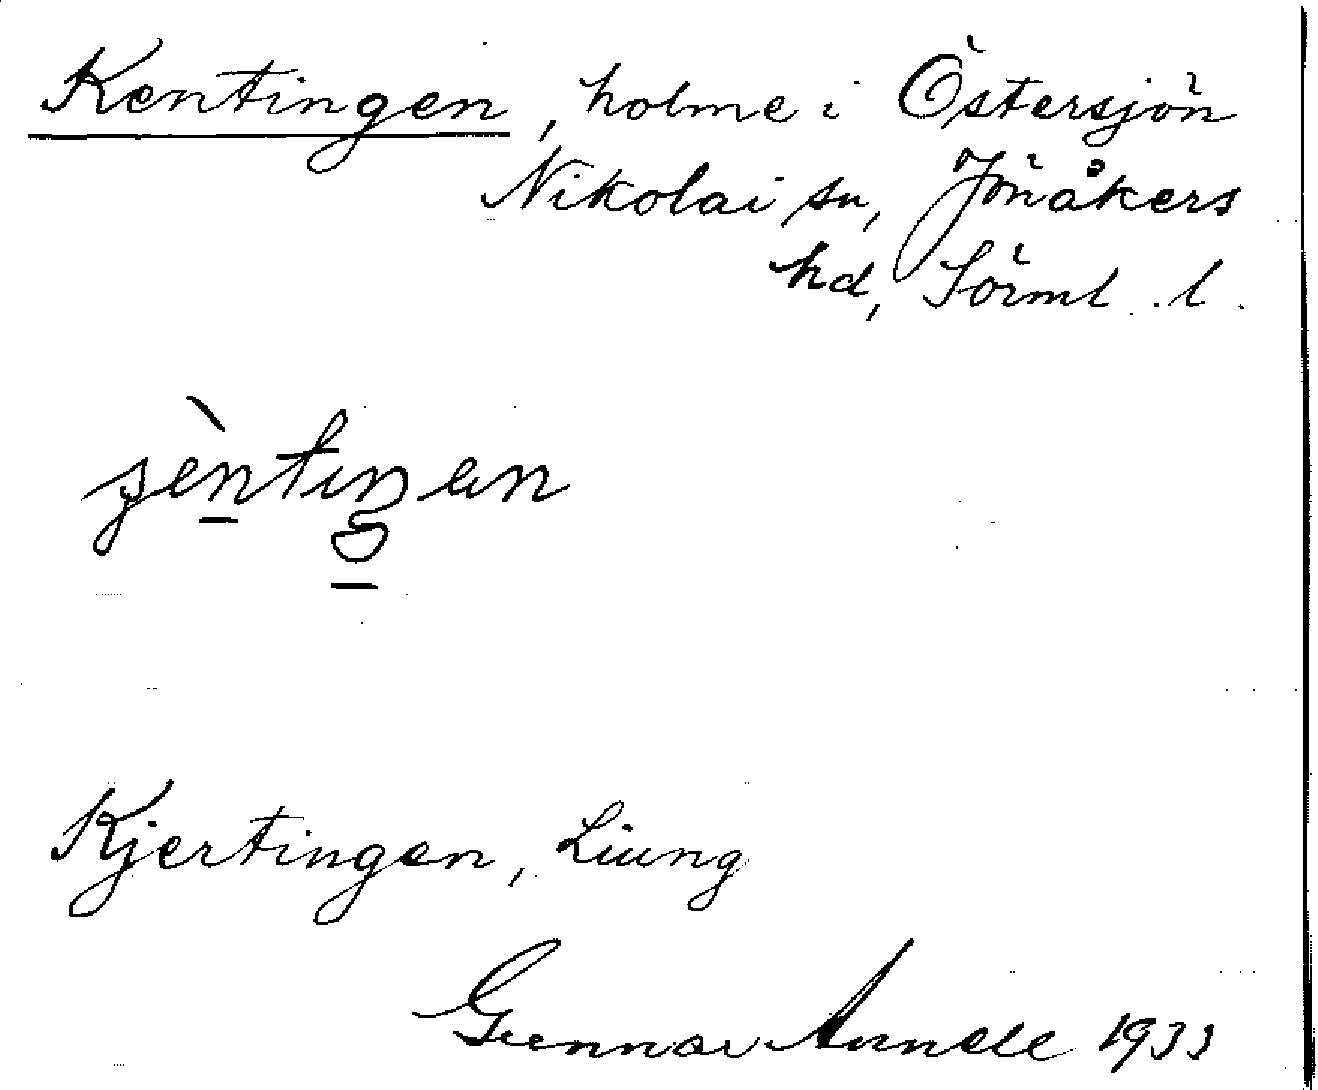 Kentingen, holme i Östersjön
Nikolai sn, Jönåkers
hd, Sörml. l.
Kjertingen, Liung
Gunnar 1933